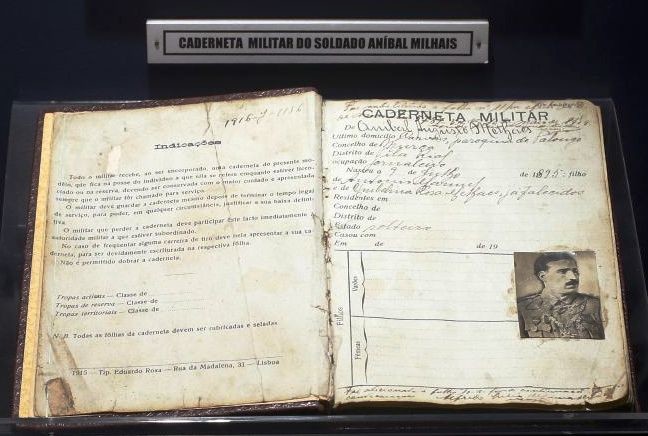 CADERNETA MILITAR DO SOLDADO ANÍBAL MILHAIS
1916-J-1156
Indicações
Todo o militar recebe, ao ser encorporado, uma caderneta do presente mo-
dêlo, que fica na posse do indivíduo a que ela se refere enquanto estiver licen-
ciado ou na reserva, devendo ser conservada com o maior cuidado e apresentada
sempre que o militar fôr chamado para serviço.
O militar deve guardar a caderneta mesmo depois de terminar o tempo legal
de serviço, para poder, em qualquer circunstância, justificar a sua baixa defini-
tiva.
O militar que perder a caderneta deve participar êste facto imediatamente à
autoridade militar a que estiver subordinado.
No caso de freqüentar alguma carreira de tiro deve nela apresentar a sua ca-
derneta, para ser devidamente escriturada na respectiva fôlha.
Não é permitido dobrar a caderneta.
Tropas activas — Classe de
Tropas de reserva — Classe de
Tropas territoriais — Classe de
N. B. Todas as fôlhas da caderneta devem ser rubricadas e seladas
1915 — Tip. Eduardo Rosa — Rua da Madalena, 31 — Lisboa
CADERNETA MILITAR
De Anibal Augusto Milhais
Último domicílio paroquia de Valongo
Concelho de Murça
Distrito de Vila Real
ocupação
Nasceu a 9 de Julho de 1895: filho
de António
e de já falecidos
Residentes em
Concelho de
Distrito de
Estado solteiro
Casou com
Em de de 19
Filhos
Varões
Fêmeas